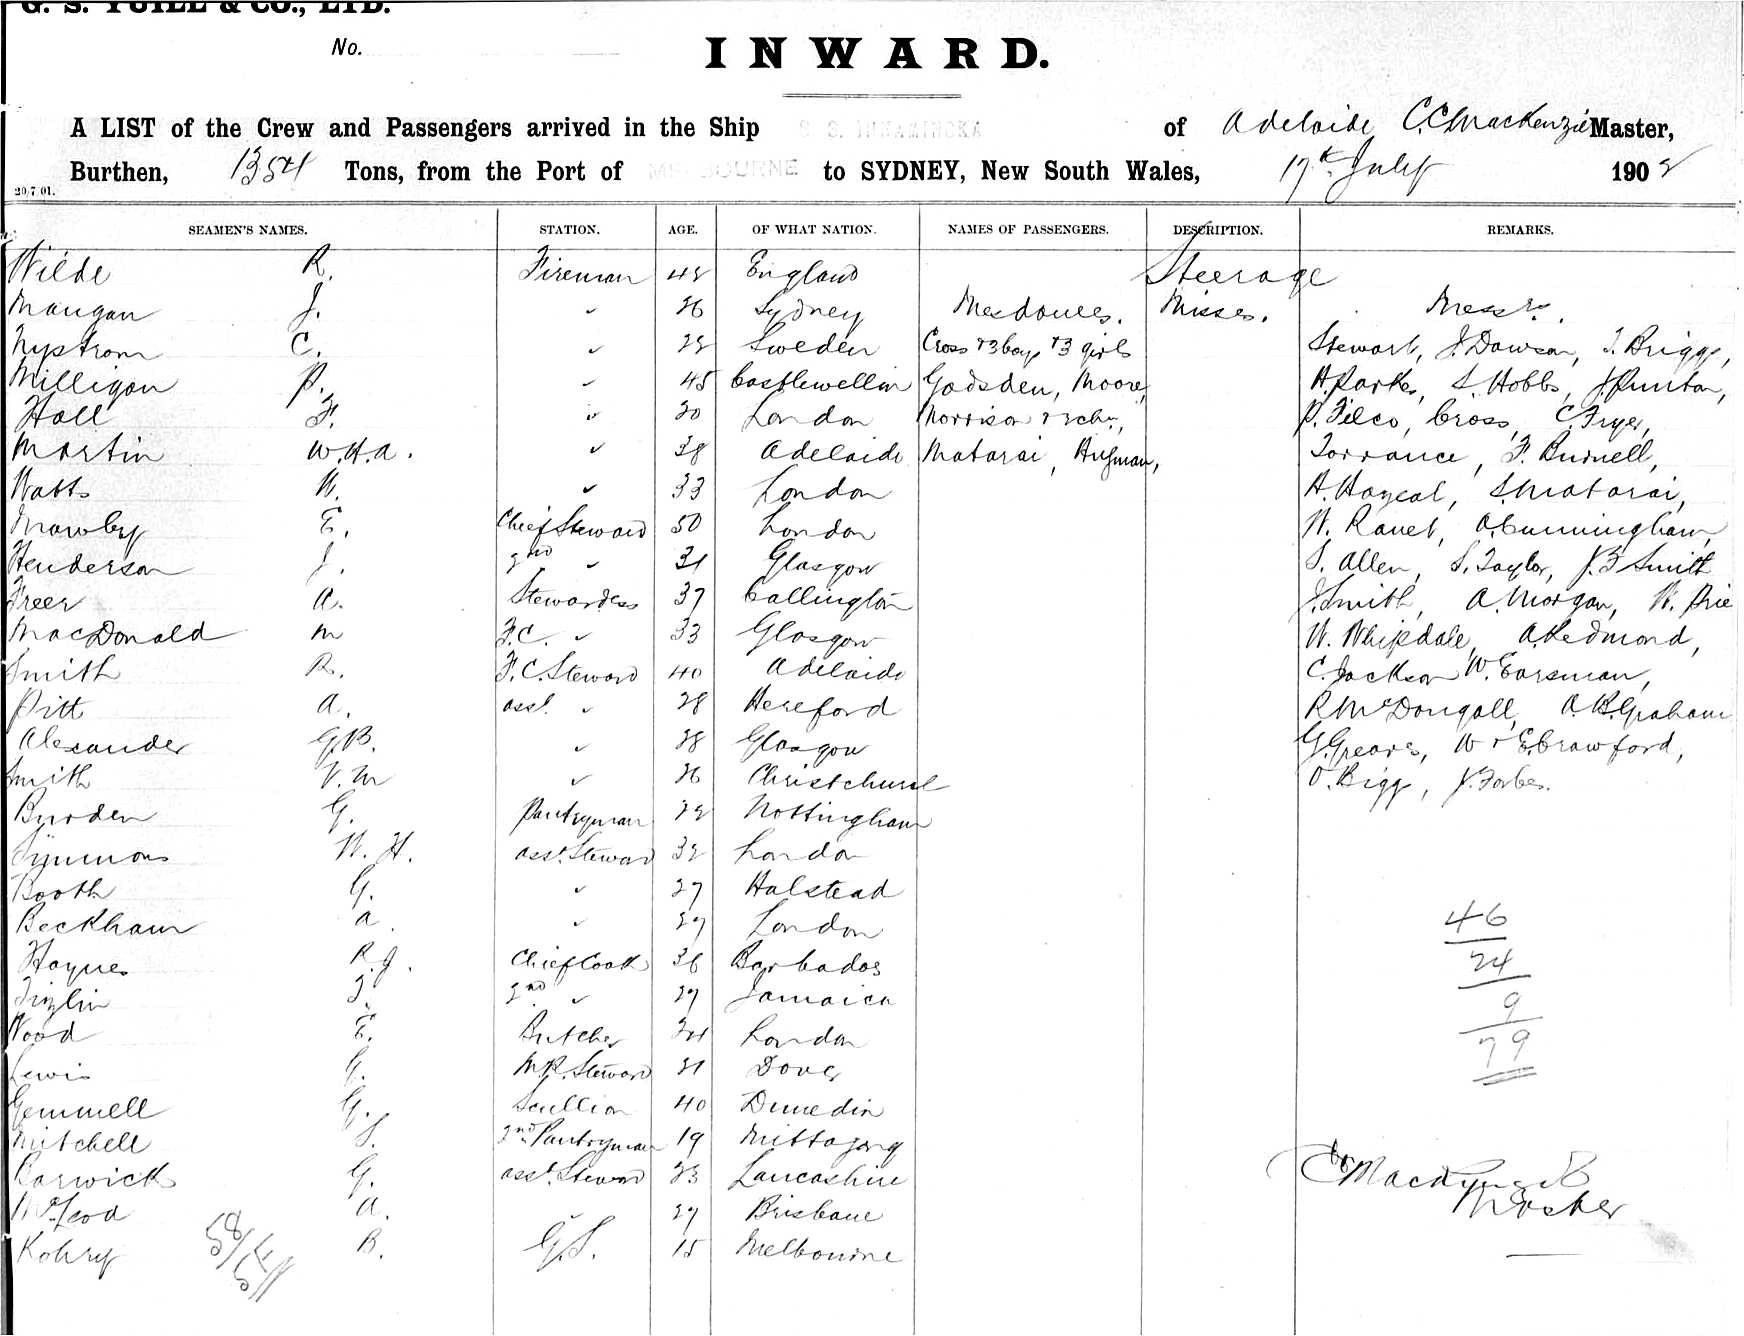 G. S. YUILL & CO., LTD.
No.
INWARD.
A LIST of the Crew and Passengers arrived in the Ship S. S. INNAMINCKA of Adelaide C.C. Mackenzie Master,
Burthen, 1354 Tons, from the Port of MELBOURNE to SYDNEY, New South Wales, 17th July 1902
20/7/01.
SEAMEN'S NAMES. STATION. AGE. OF WHAT NATION. NAMES OF PASSENGERS. DESCRIPTION. REMARKS.
Wilde R. Fireman 48 England Steerage
Mangan J. " 26 Sydney Mesdames. Misses. Messrs.
Nystrom C. " Sweden Cross & 3 boys & 3 girls Stewart, J. Dawson, T. Briggs,
Milligan P. " 45 Castlewellin Gadsden, Moore, H. Parkes, S. Hobbs, J. Punton,
Hall F. " London Morrison & chn, P. Filco, Cross, C. Fryer,
Martin W.H.A. " 38 Adelaide Matarai, Torrance, F. Burnell,
Watts W. " 33 London S. Matarai,
Mawby E. Chief Steward 50 London W. A. Cunningham,
Henderson J. 2nd " Glasgow S. Allen, S. Taylor, J. B Smith
Freer A. Stewardess 37 Callington J. Smith, A. Morgan, W. Brie
MacDonald M F.C. " 33 Glasgow W. Whipdale, A. Redmond,
Smith R. F.C. Steward 40 Adelaide C. Jackson W. Earsman,
Pitt A. asst. " 28 Hereford R. McDougall, A. B. Graham
Alexander G.B. " 28 Glasgow G. Greaves, W & E. Crawford,
Smith V.M " 26 Christchurch O. Bigg, J. Forbes.
Burden G. Pantryman 22 Nottingham
Symmons W. H. asst. Steward 32 London
Booth G. " 27 Halstead
Beckham A. " 29 London 46
Haynes R.J. Chief Cook 36 Barbados 24
2nd " Jamaica 9
Wood E. Butcher London 79
Lewis G. M.R. Steward 21 Dover
Gemmell G. Scullion 40 Dunedin
Mitchell S. 2nd Pantryman 19 Mittagong
Barwick G. asst. Steward 23 Lancashire C C Mackenzie
McLeod A. " Brisbane Master
Kohry B. G.S. 15 Melbourne
58/